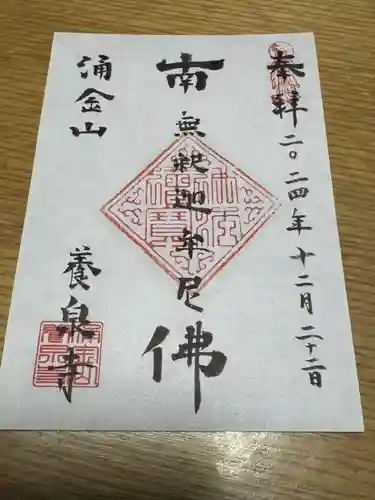 奉拝 二〇二四年 十二月 二十二日
南無釈迦牟尼佛
涌金山
養泉寺